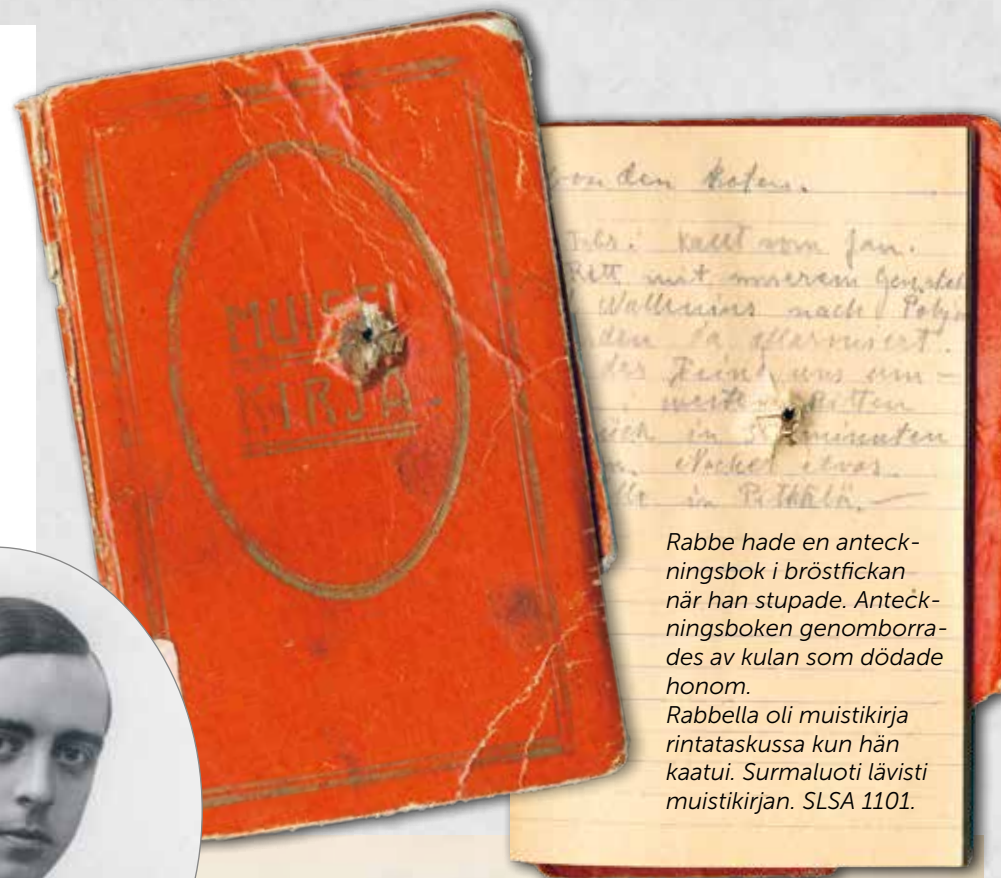 MUISTI
KIRJA
von den Roten.
kallt vom Jan.
Ritt mit unserem
nach
den allarmiert.
der Feind uns um-
Ritten
in minuten
etwas.
in Pitkälä. —
Rabbe hade en anteck-
ningsbok i bröstfickan
när han stupade. Anteck-
ningsboken genomborra-
des av kulan som dödade
honom.
Rabbella oli muistikirja
rintataskussa kun hän
kaatui. Surmaluoti lävisti
muistikirjan. SLSA 1101.